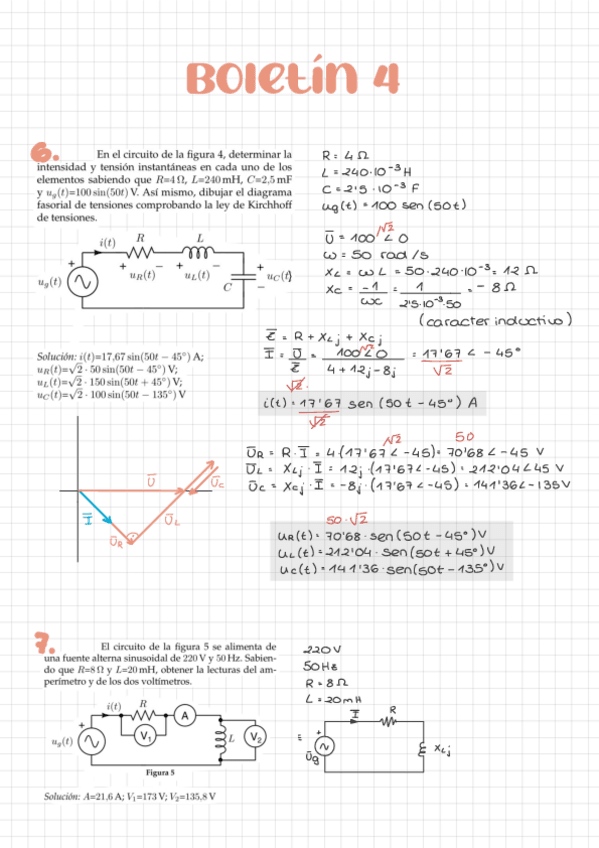 Boletín 4
6.
En el circuito de la figura 4, determinar la
intensidad y tensión instantáneas en cada uno de los
elementos sabiendo que R=4 Ω, L=240 mH, C=2,5 mF
y ug(t)=100 sin(50t) V. Así mismo, dibujar el diagrama
fasorial de tensiones comprobando la ley de Kirchhoff
de tensiones.
R = 4 Ω
L = 240·10⁻³ H
C = 2'5 · 10⁻³ F
ug(t) = 100 sen (50t)
i(t) R L
+ uR(t) − + uL(t) −
ug(t) + C + uC(t) −
√2
U̅ = 100 ∠0
ω = 50 rad/s
XL = ωL = 50·240·10⁻³ = 12 Ω
XC = -1/ωC = 1/2'5·10⁻³·50 = - 8 Ω
(caracter inductivo)
Z̅ = R + XLj + XCj
I̅ = U̅/Z̅ = 100√2∠0/4+12j-8j = 17'67/√2 ∠ -45°
√2.
i(t) = 17'67/√2 sen (50t - 45°) A
Solución: i(t)=17,67 sin(50t − 45°) A;
uR(t)=√2 · 50 sin(50t − 45°) V;
uL(t)=√2 · 150 sin(50t + 45°) V;
uC(t)=√2 · 100 sin(50t − 135°) V
√2 50
U̅R = R·I̅ = 4·(17'67∠-45) = 70'68∠-45 V
U̅L = XLj · I̅ = 12j ·(17'67∠-45) = 212'04∠45 V
U̅C = XCj · I̅ = -8j · (17'67∠-45) = 141'36∠-135V
U̅ U̅C
I̅ U̅L
U̅R
50·√2
uR(t) = 70'68 · sen (50t - 45°) V
uL(t) = 212'04 · sen (50t + 45°) V
uC(t) = 141'36 · sen (50t - 135°) V
7.
El circuito de la figura 5 se alimenta de
una fuente alterna sinusoidal de 220 V y 50 Hz. Sabien-
do que R=8 Ω y L=20 mH, obtener la lecturas del am-
perímetro y de los dos voltímetros.
220V
50Hz
R = 8 Ω
L = 20mH
i(t) R A
V1
ug(t) + L V2
Figura 5
I̅ R
= + U̅g XLj
Solución: A=21,6 A; V1=173 V; V2=135,8 V